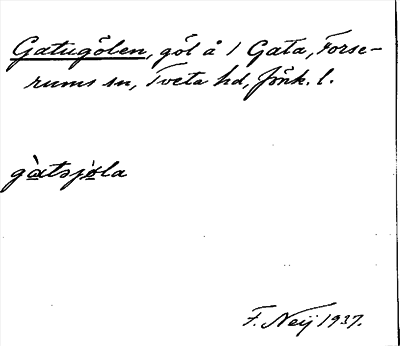 Gatugölen, göl å 1 Gata, Forse-
rums sn, Tveta hd, Jönk. l.
gàtsjöla
F. Neij 1937.